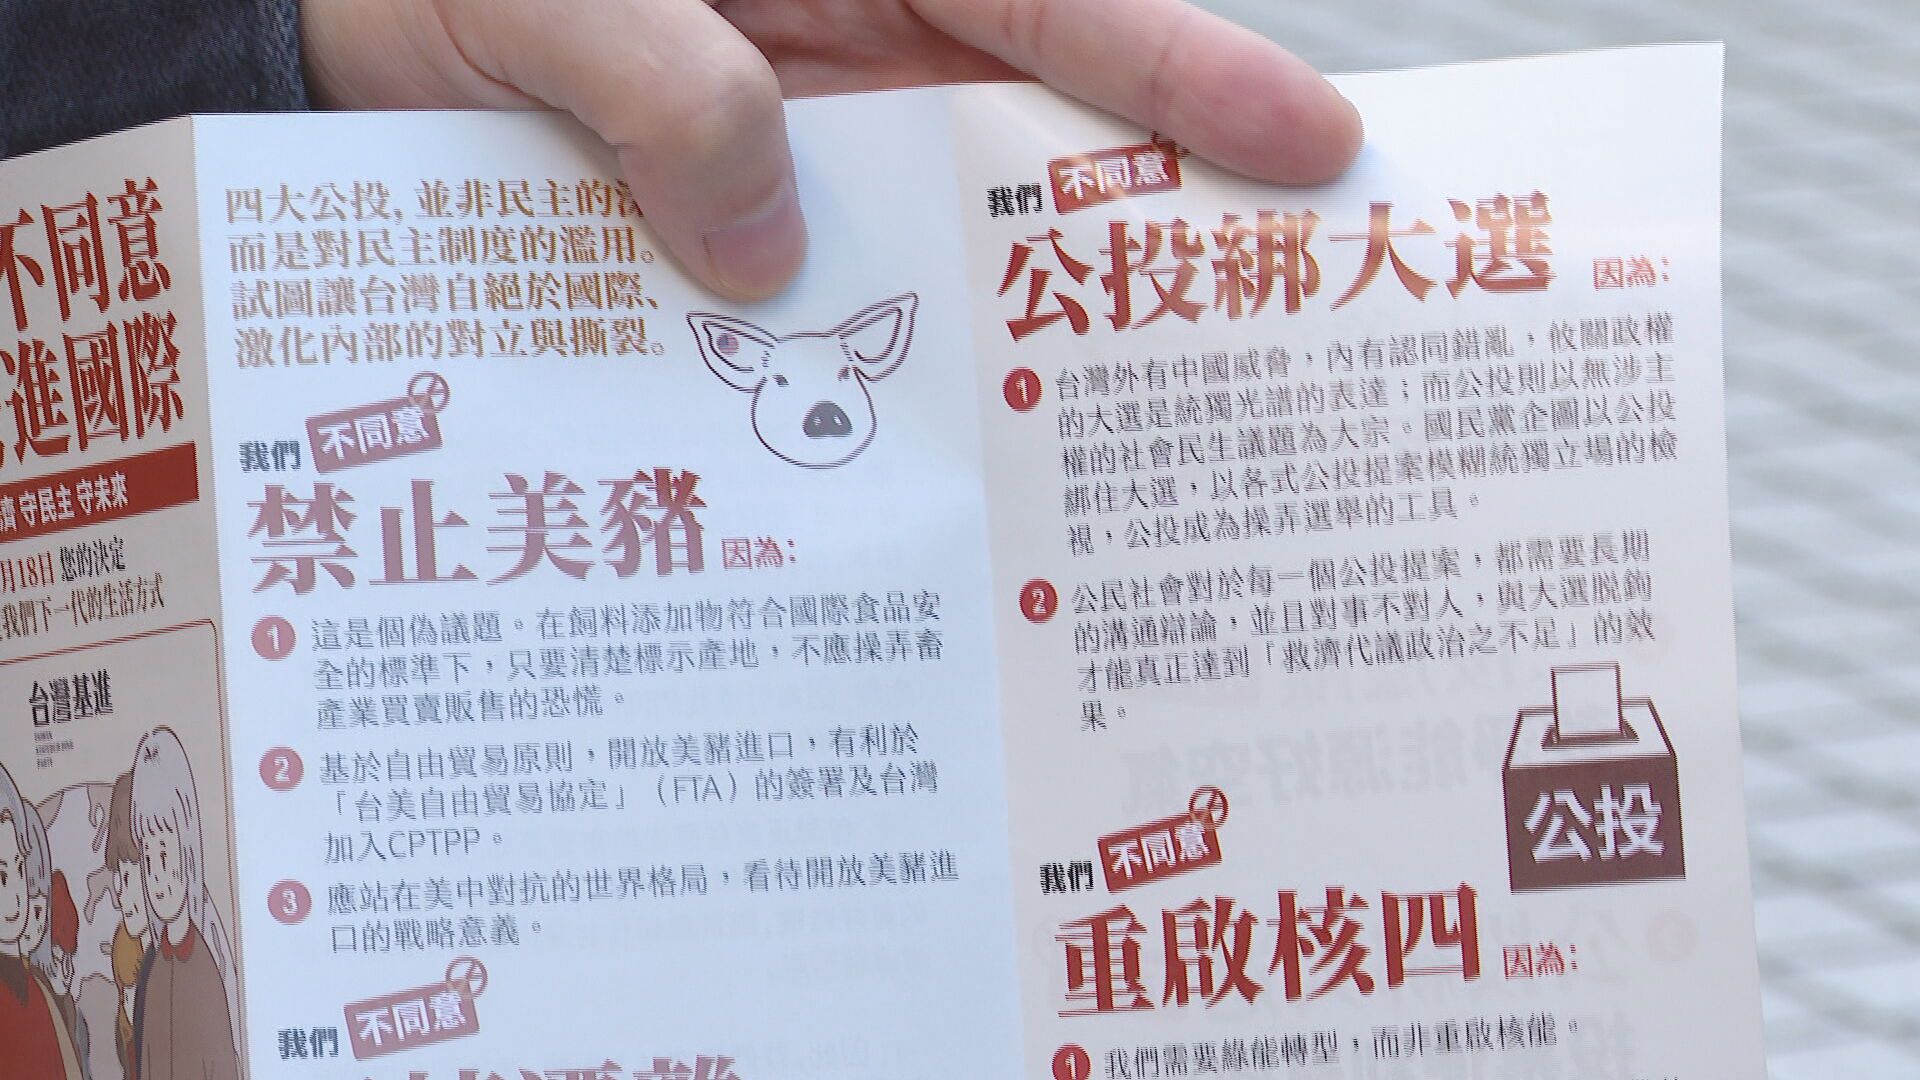 不同意
進國際
濟 守民主 守未來
月18日 您的決定
我們下一代的生活方式
台灣基進
四大公投, 並非民主的
而是對民主制度的濫用。
試圖讓台灣自絕於國際、
激化內部的對立與撕裂。
我們 不同意
禁止美豬 因為:
1 這是個偽議題。在飼料添加物符合國際食品安
全的標準下,只要清楚標示產地,不應操弄畜
產業買賣販售的恐慌。
2 基於自由貿易原則,開放美豬進口,有利於
「台美自由貿易協定」(FTA)的簽署及台灣
加入CPTPP。
3 應站在美中對抗的世界格局,看待開放美豬進
口的戰略意義。
我們 不同意
我們 不同意
公投綁大選 因為:
1 台灣外有中國威脅,內有認同錯亂,攸關政權
的大選是統獨光譜的表達;而公投則以無涉主
權的社會民生議題為大宗。國民黨企圖以公投
綁住大選,以各式公投提案模糊統獨立場的檢
視,公投成為操弄選舉的工具。
2 公民社會對於每一個公投提案,都需要長期
的溝通辯論,並且對事不對人,與大選脫鉤
才能真正達到「救濟代議政治之不足」的效
果。
公投
我們 不同意
重啟核四 因為:
1 我們需要綠能轉型,而非重啟核能。